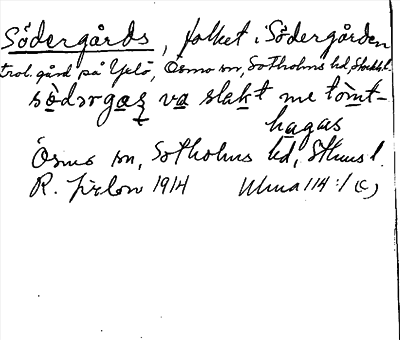 Södergårds, folket i Södergården
trol. gård på Yxlö, Ösmo sn, Sotholms hd, Stockh.l.
södərgaʂ va slakt me tömt-
hagas
Ösmo sn, Sotholms hd, Sthms l.
R. 1914 ULMA 114:1 (c)